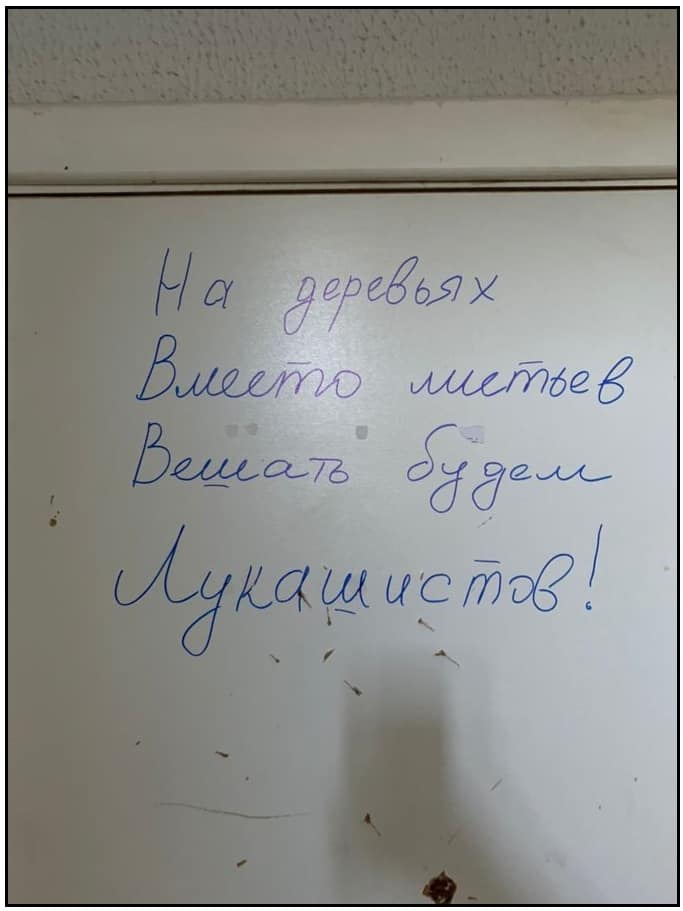 На деревьях
Вместо листьев
Вешать будем
Лукашистов!